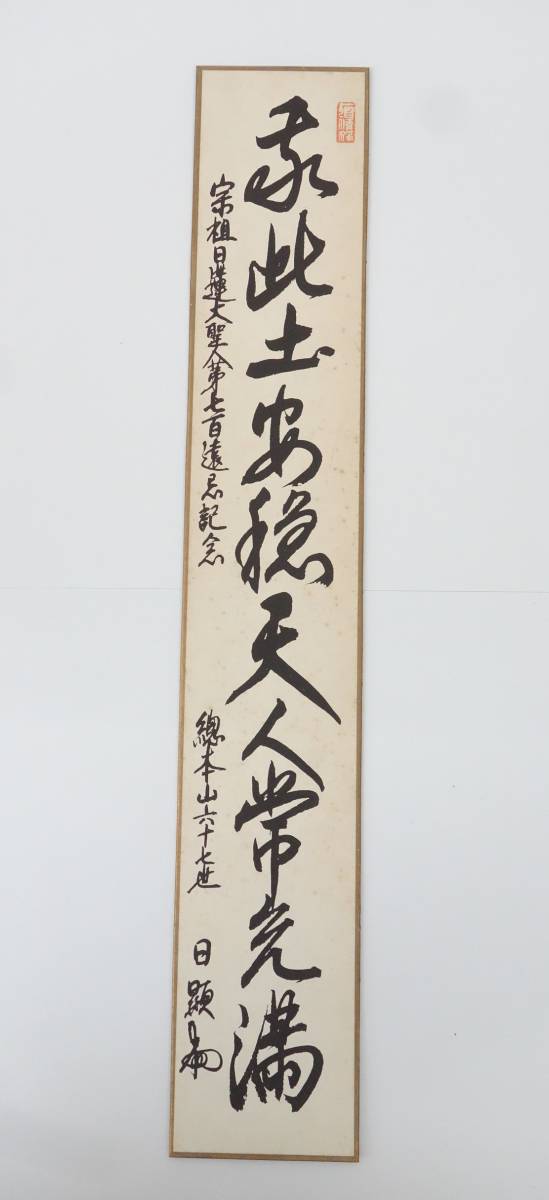 我此土安穏天人常充満
宗祖日蓮大聖人第七百遠忌記念
總本山六十七世
日顯